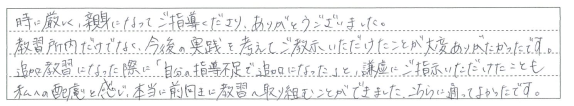 時に厳しく、親身になってご指導くださり、ありがとうございました。
教習所内だけでなく、今後の実践を考えてご教示いただけたことが大変ありがたかったです。
追加教習になった際に「自分の指導不足で追加になった」と、謙虚にご指示いただけたことも
私への配慮と感じ、本当に前向きに教習へ取り組むことができました。こちらに通ってよかったです。